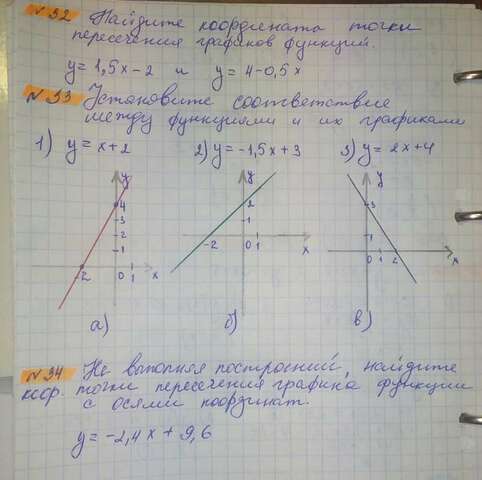 №32 Найдите координаты точки
пересечения графиков функций.
y = 1,5x - 2 и y = 4 - 0,5x
№33 Установите соответствие
между функциями и их графиками
1) y = x + 2 2) y = -1,5x + 3 3) y = 2x + 4
y y y
4 3 2 1 -2 0 1 x
2 -2 0 1 x
3 1 0 1 2 x
а) б) в)
№34 Не выполняя построений, найдите
коор. точки пересечения графика функции
с осями координат.
y = -2,4x + 9,6